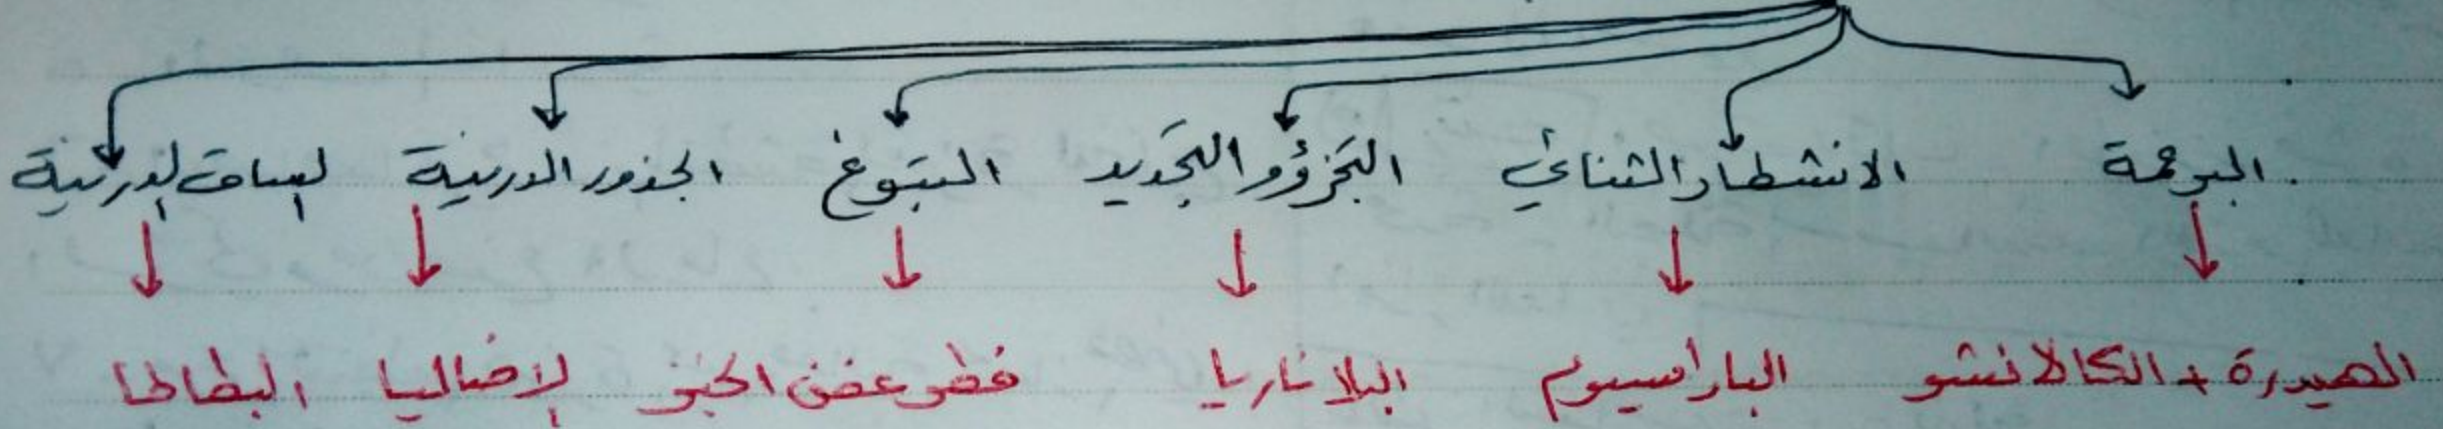 البرعمة الانشطار الثنائي التجزؤ والتجديد التبوغ الجذور الدرنية الساق الدرنية
الهيدرة + الكالانشو الباراميسيوم البلاناريا فطر عفن الخبز الاضاليا البطاطا